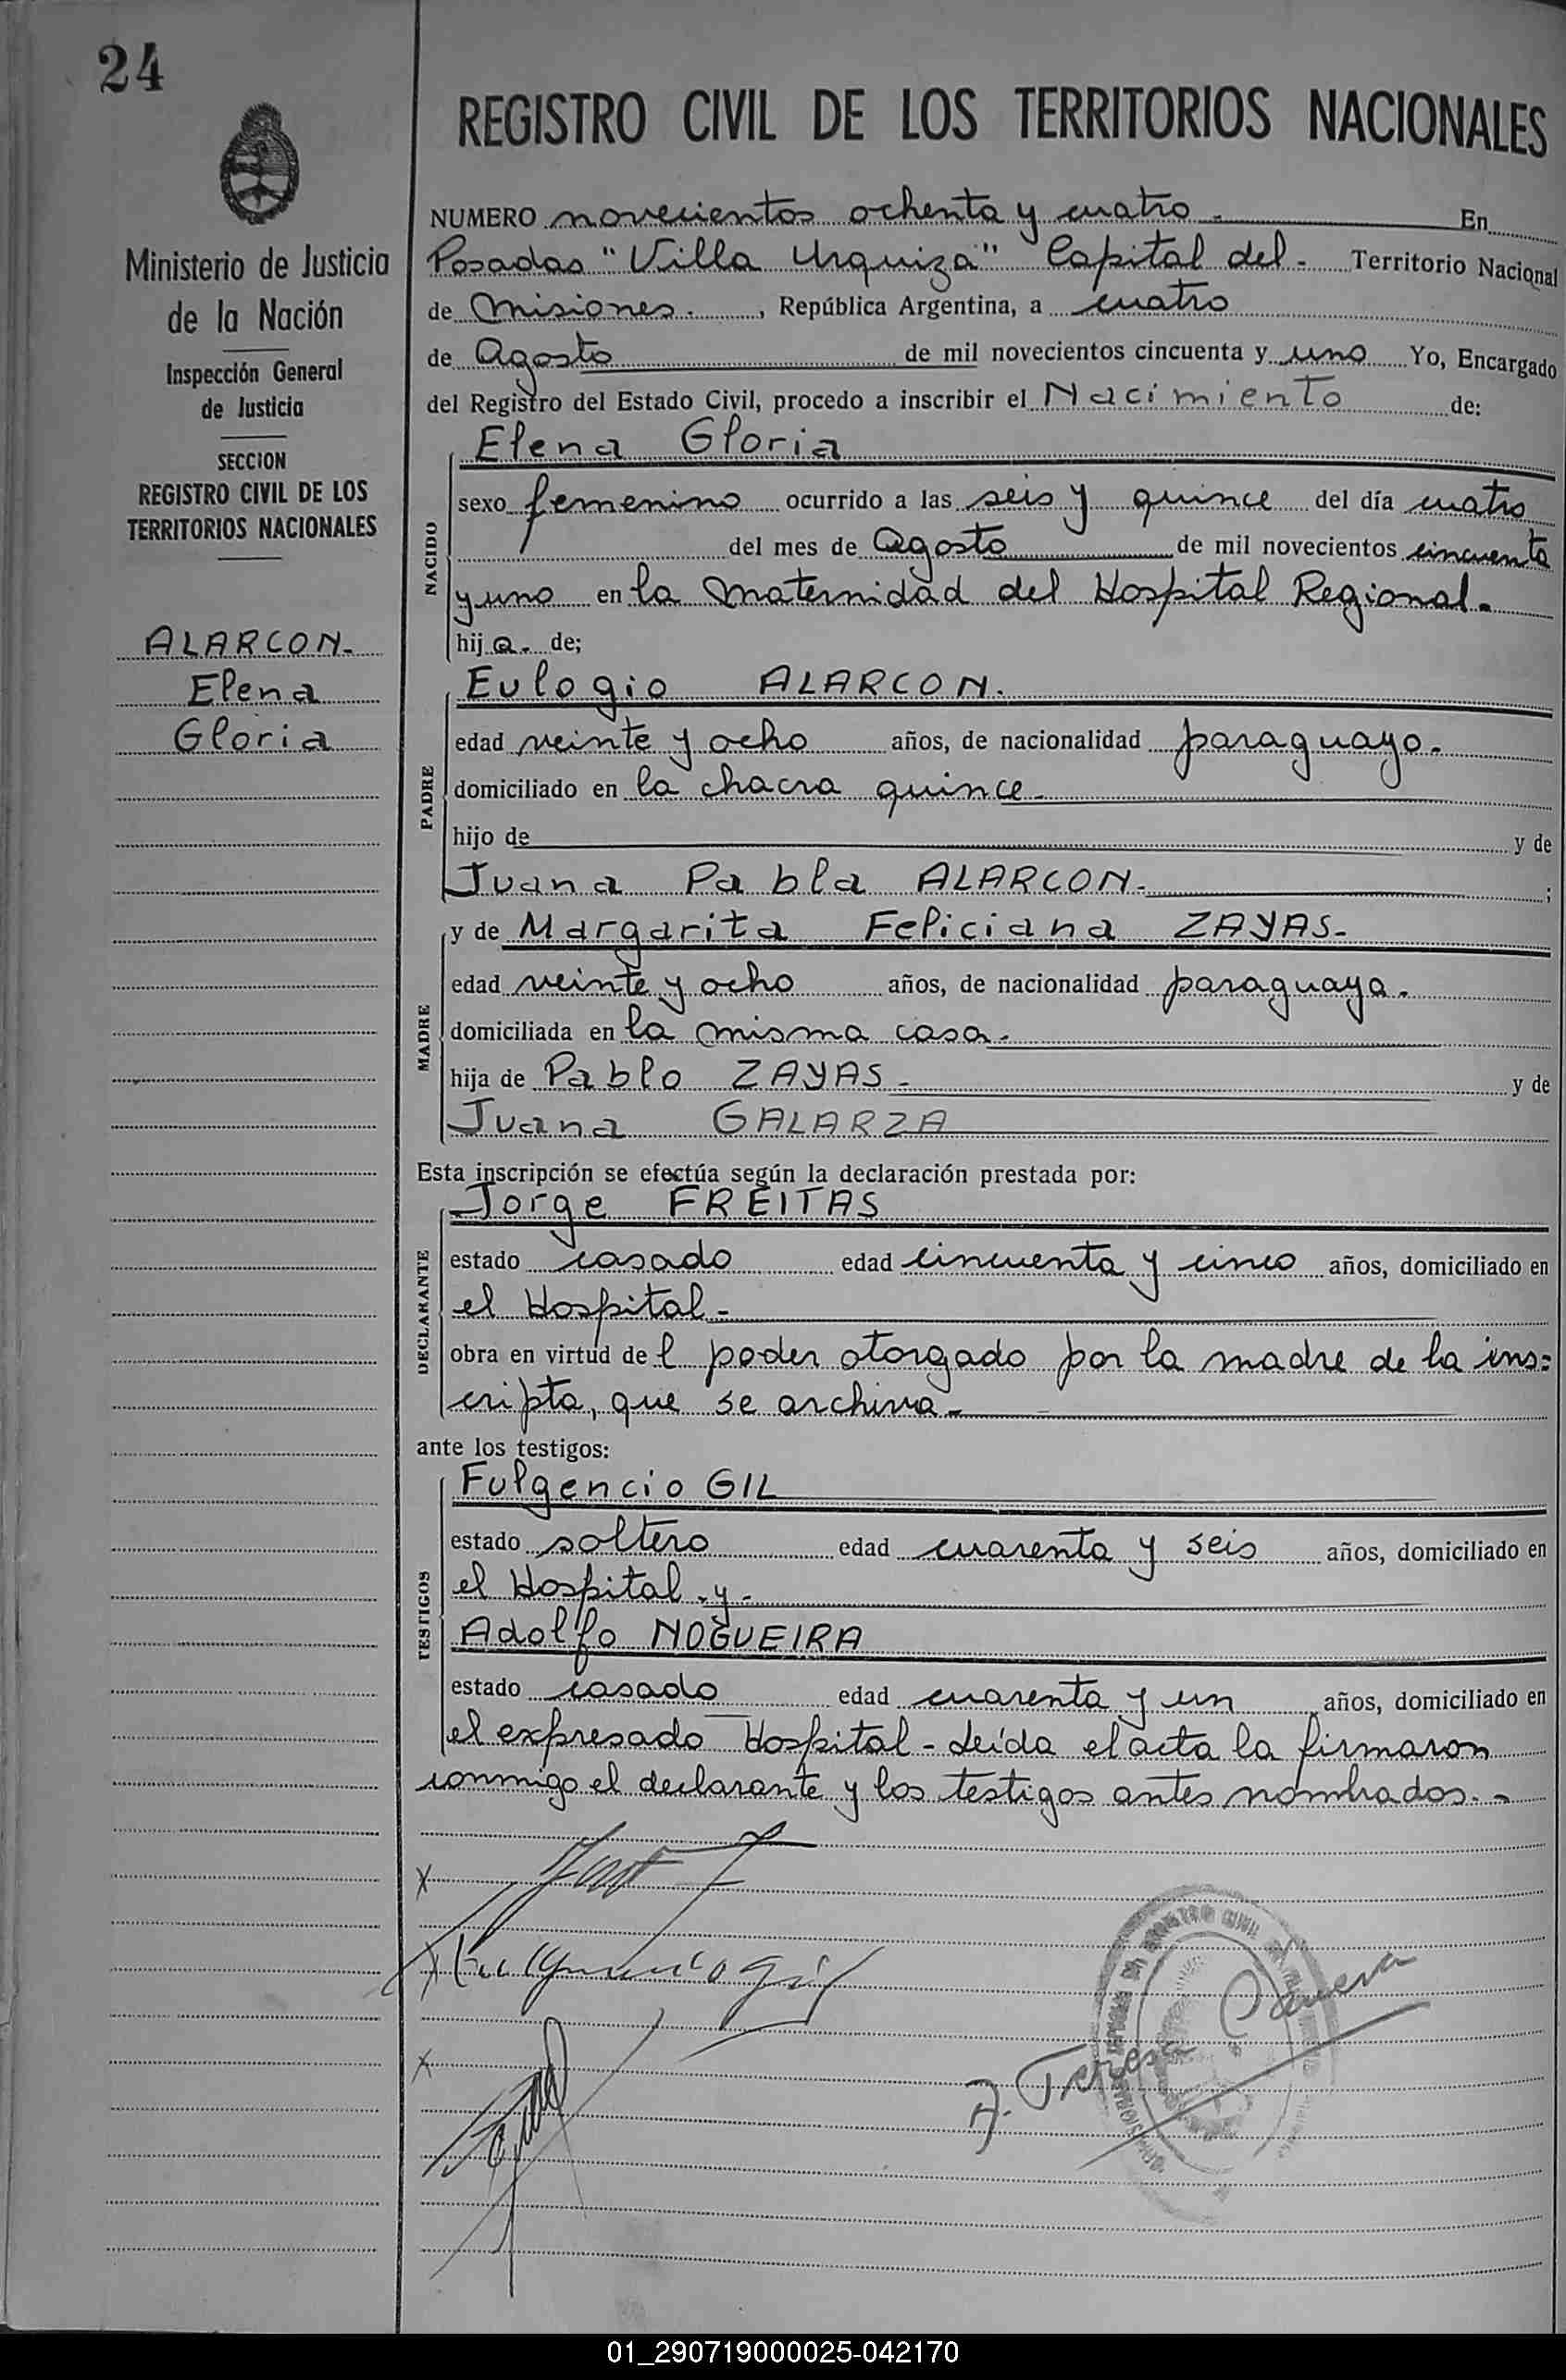 24
Ministerio de Justicia
de la Nación
Inspección General
de Justicia
SECCION
REGISTRO CIVIL DE LOS
TERRITORIOS NACIONALES
ALARCON.
Elena
Gloria
REGISTRO CIVIL DE LOS TERRITORIOS NACIONALES
NUMERO novecientos ochenta y cuatro. En
Posadas "Villa Urquiza" Capital del - Territorio Nacional
de Misiones., República Argentina, a cuatro
de Agosto de mil novecientos cincuenta y uno Yo, Encargado
del Registro del Estado Civil, procedo a inscribir el Nacimiento de:
NACIDO
Elena Gloria
sexo femenino ocurrido a las seis y quince del día cuatro
del mes de Agosto de mil novecientos cincuenta
y uno en la Maternidad del Hospital Regional.
hija. de;
PADRE
Eulogio ALARCON.
edad veinte y ocho años, de nacionalidad paraguayo.
domiciliado en la chacra quince.
hijo de y de
Juana Pabla ALARCON. ;
MADRE
y de Margarita Feliciana ZAYAS.
edad veinte y ocho años, de nacionalidad paraguaya.
domiciliada en la misma casa.
hija de Pablo ZAYAS. y de
Juana GALARZA
Esta inscripción se efectúa según la declaración prestada por:
DECLARANTE
Jorge FREITAS
estado casado edad cincuenta y cinco años, domiciliado en
el Hospital.
obra en virtud del poder otorgado por la madre de la ins=
cripta, que se archiva.
ante los testigos:
TESTIGOS
Fulgencio GIL
estado soltero edad cuarenta y seis años, domiciliado en
el Hospital.y.
Adolfo NOGUEIRA
estado casado edad cuarenta y un años, domiciliado en
el expresado Hospital - Leída el acta la firmaron
conmigo el declarante y los testigos antes nombrados. -
x
x Fulgencio Gil
x
REGISTRO CIVIL
01_290719000025-042170